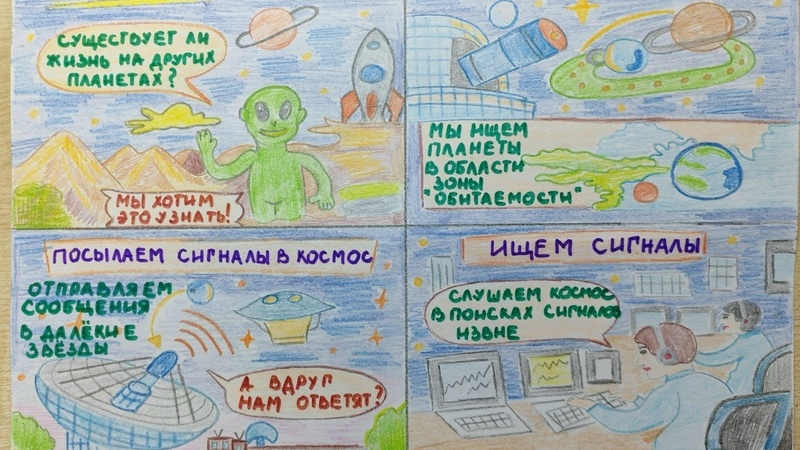 СУЩЕСТВУЕТ ЛИ
ЖИЗНЬ НА ДРУГИХ
ПЛАНЕТАХ?
МЫ ХОТИМ
ЭТО УЗНАТЬ!
МЫ ИЩЕМ
ПЛАНЕТЫ
В ОБЛАСТИ
ЗОНЫ
"ОБИТАЕМОСТИ"
ПОСЫЛАЕМ СИГНАЛЫ В КОСМОС
ОТПРАВЛЯЕМ
СООБЩЕНИЯ
В ДАЛЁКИЕ
ЗВЁЗДЫ
А ВДРУГ
НАМ ОТВЕТЯТ?
ИЩЕМ СИГНАЛЫ
СЛУШАЕМ КОСМОС
В ПОИСКАХ СИГНАЛОВ
ИЗВНЕ